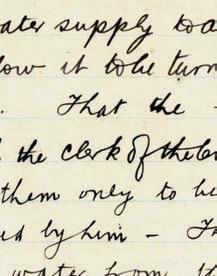 ater supply to a
low it to be turn
. That the
the clerk of the
them only to be
ed by him — 
water from